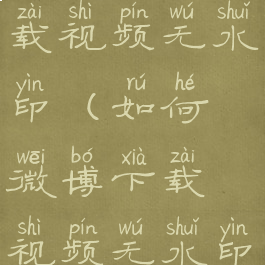 zài shì pín wú shuǐ
载视频无水
yìn rú hé
印（如何
wēi bó xià zài
微博下载
shì pín wú shuǐ yìn
视频无水印